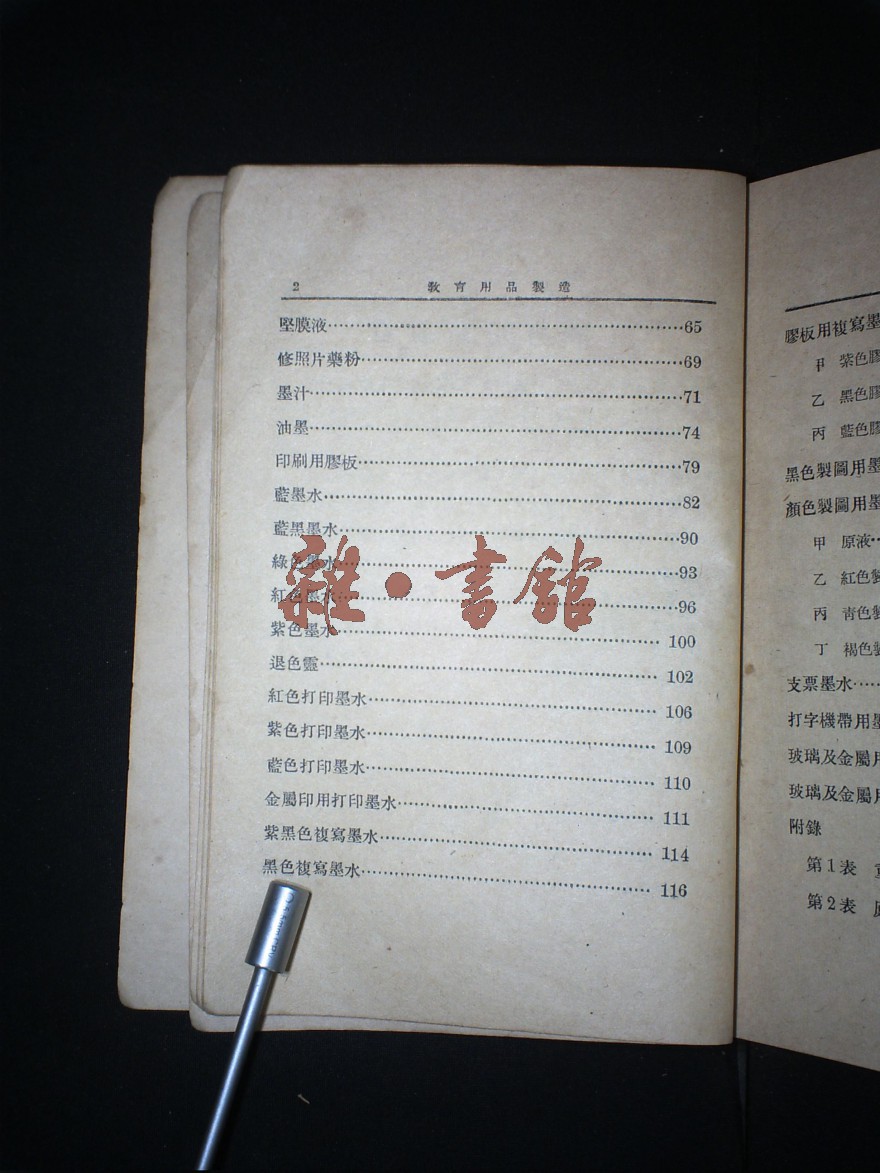 2 教育用品製造
堅膜液 65
修照片藥粉 69
墨汁 71
油墨 74
印刷用膠板 79
藍墨水 82
藍黑墨水 90
綠色墨水 93
紅色墨水 96
紫色墨水 100
退色靈 102
紅色打印墨水 106
紫色打印墨水 109
藍色打印墨水 110
金屬印用打印墨水 111
紫黑色複寫墨水 114
黑色複寫墨水 116
雜·書館
膠板用複寫墨
甲 紫色膠
乙 黑色膠
丙 藍色膠
黑色製圖用墨
顏色製圖用墨
甲 原液
乙 紅色製
丙 青色製
丁 褐色製
支票墨水
打字機帶用墨
玻璃及金屬用
玻璃及金屬用
附錄
第1表
第2表